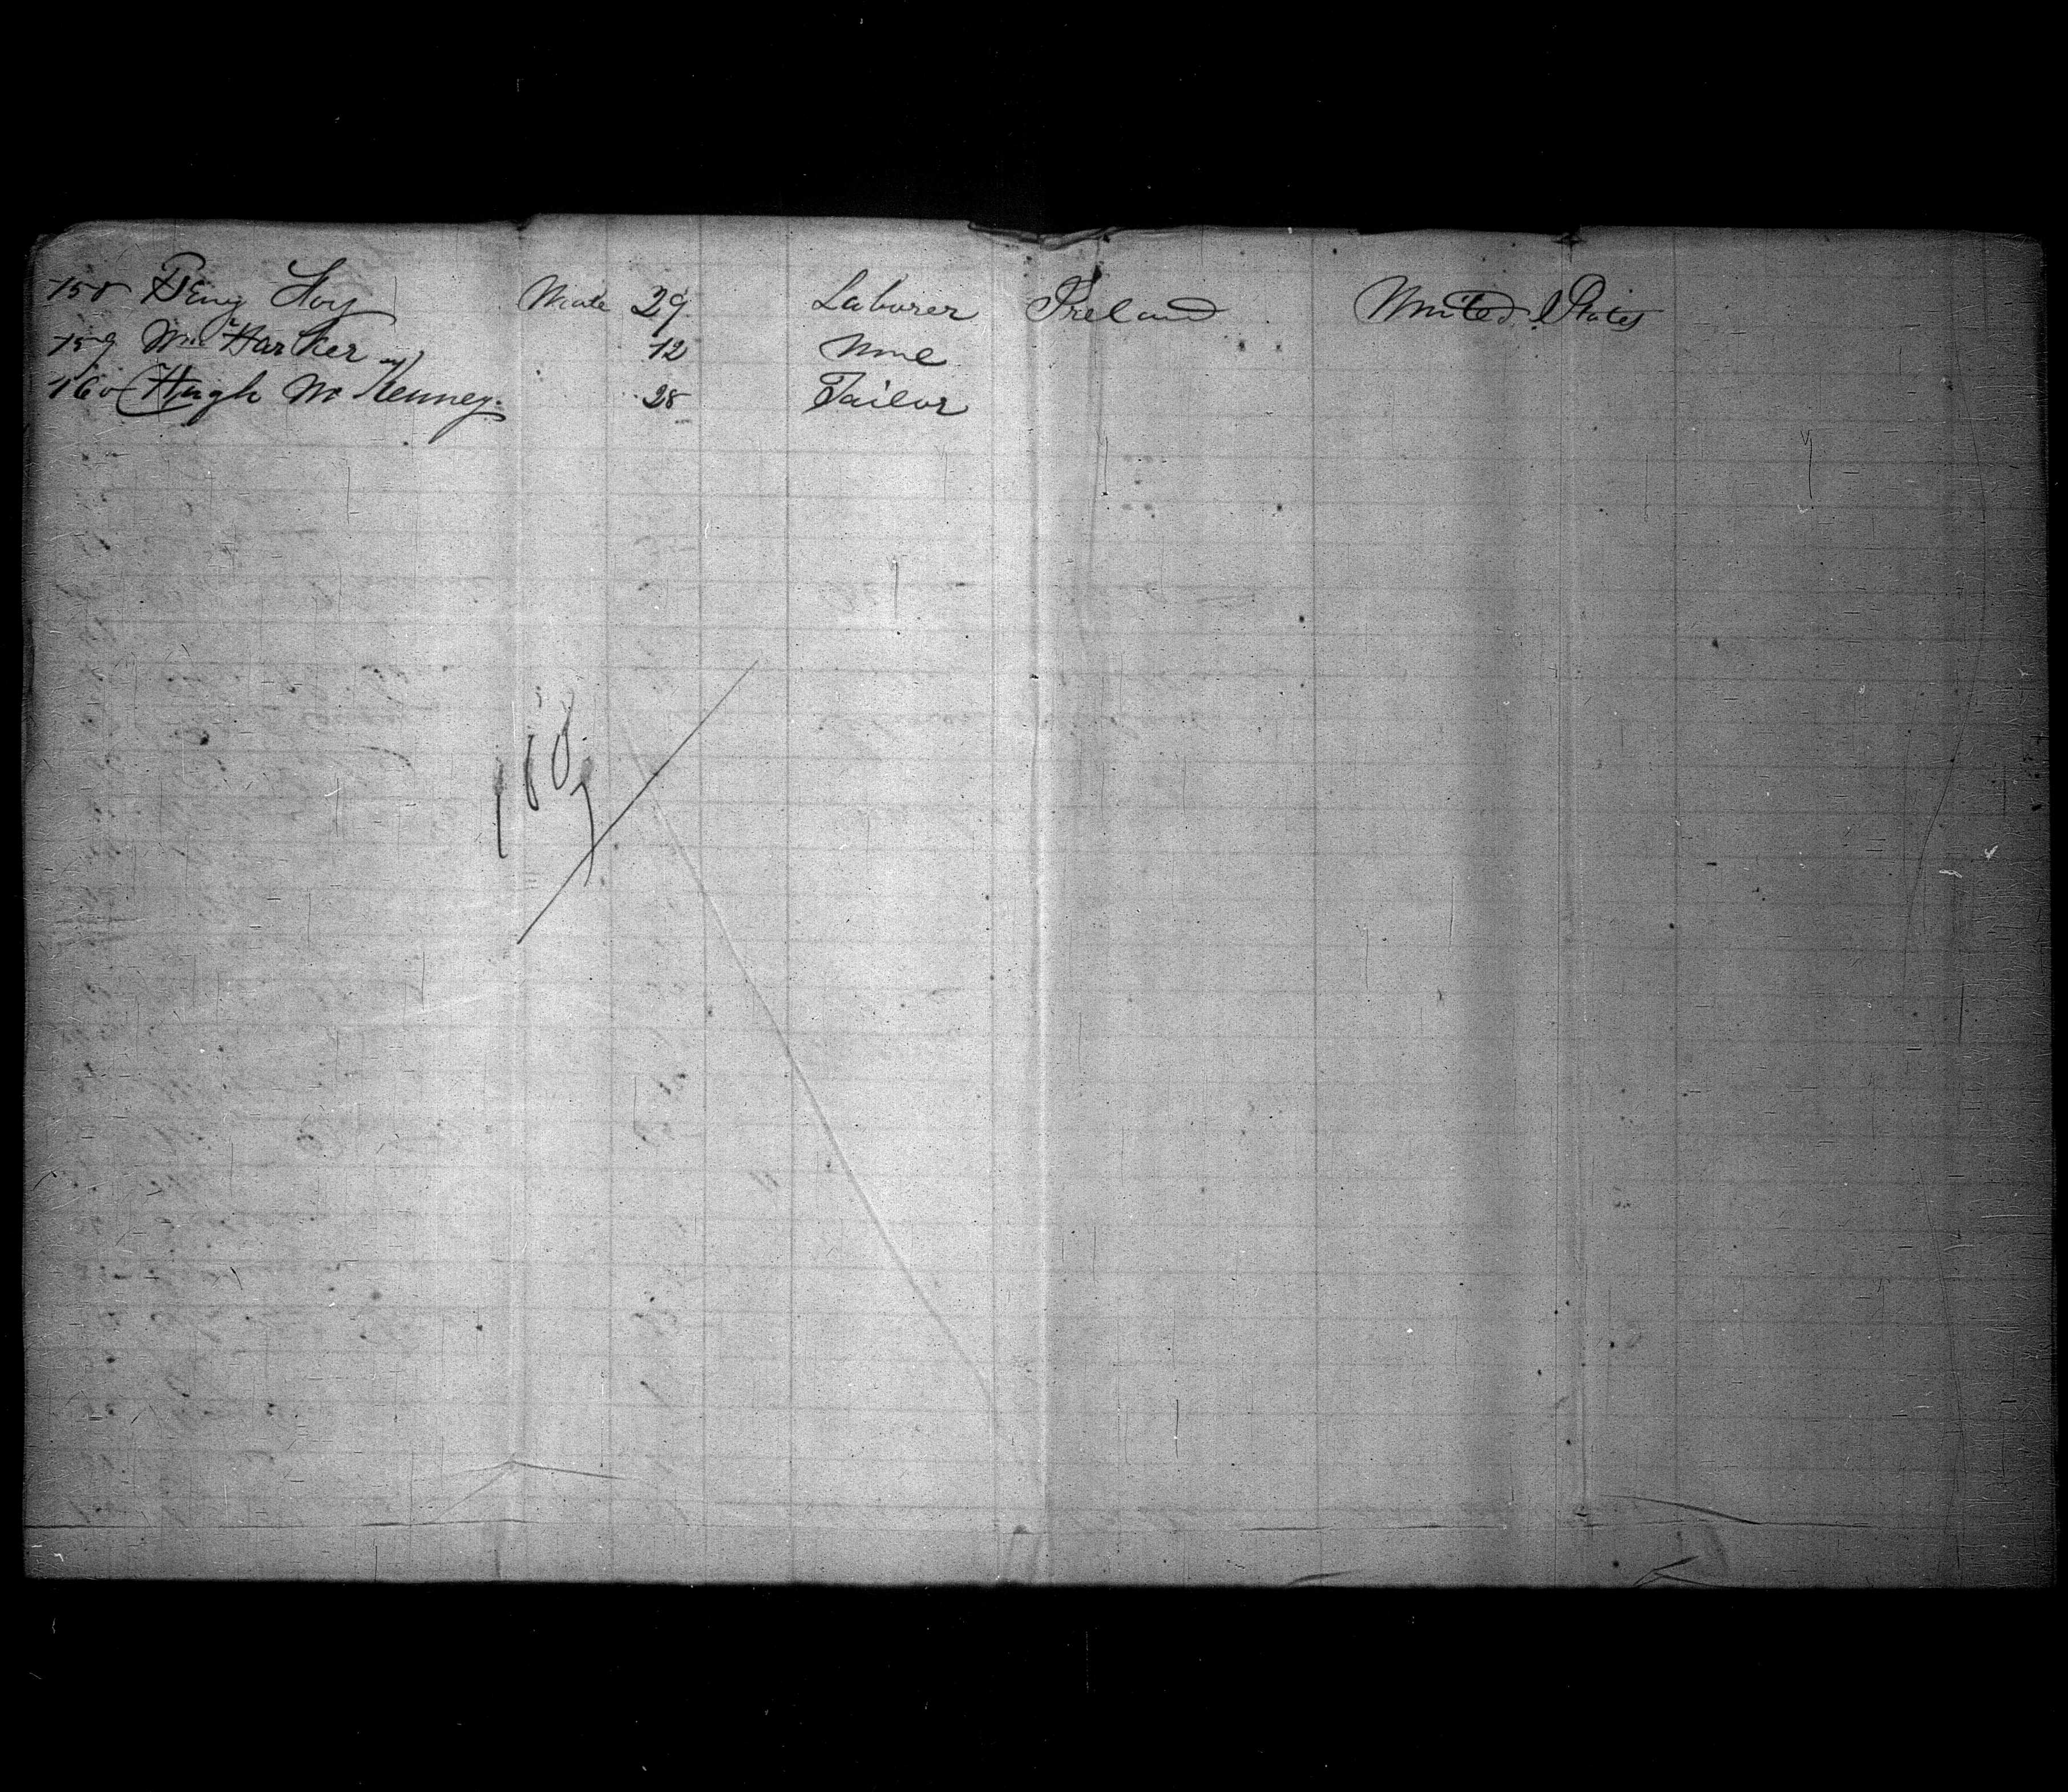 158 Benj Hoy Male 29 Laborer Ireland United States
159 Wm Harker 12 None
160 Hugh McKenney 28 Tailor